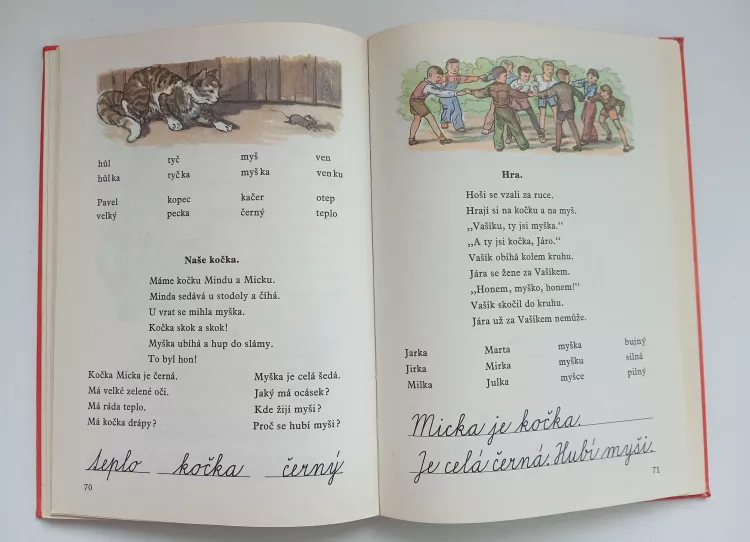 hůl tyč myš ven
hůlka tyčka myška venku
Pavel kopec kačer otep
velký pecka černý teplo
Naše kočka.
Máme kočku Mindu a Micku.
Minda sedává u stodoly a číhá.
U vrat se mihla myška.
Kočka skok a skok!
Myška ubíhá a hup do slámy.
To byl hon!
Kočka Micka je černá.
Má velké zelené oči.
Má ráda teplo.
Má kočka drápy?
Myška je celá šedá.
Jaký má ocásek?
Kde žijí myši?
Proč se hubí myši?
teplo kočka černý
70
Hra.
Hoši se vzali za ruce.
Hrají si na kočku a na myš.
„Vašíku, ty jsi myška.“
„A ty jsi kočka, Járo.“
Vašík obíhá kolem kruhu.
Jára se žene za Vašíkem.
„Honem, myško, honem!“
Vašík skočil do kruhu.
Jára už za Vašíkem nemůže.
Jarka Marta myška bujný
Jirka Mirka myšku silná
Milka Julka myšce pilný
Micka je kočka.
Je celá černá. Hubí myši.
71